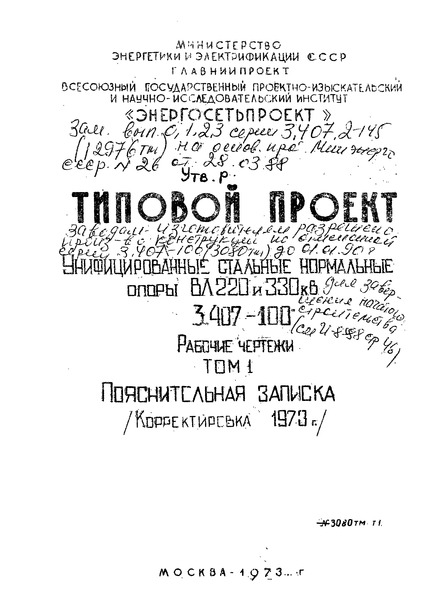 МИНИСТЕРСТВО
ЭНЕРГЕТИКИ И ЭЛЕКТРИФИКАЦИИ СССР
ГЛАВНИИПРОЕКТ
ВСЕСОЮЗНЫЙ ГОСУДАРСТВЕННЫЙ ПРОЕКТНО-ИЗЫСКАТЕЛЬСКИЙ
И НАУЧНО-ИССЛЕДОВАТЕЛЬСКИЙ ИНСТИТУТ
«ЭНЕРГОСЕТЬПРОЕКТ»
Зам. вып. 0,1,2,3 серии 3.407.2-145
(12976тм) на основ. Минэнерго
СССР N 26 от 28.03.88
Утв. р.
ТИПОВОЙ ПРОЕКТ
Заводам-изготовителям разрешено
произ-во конструкций по отменённой
серии 3.407-100 (3080тм) до 01.01.90г
УНИФИЦИРОВАННЫЕ СТАЛЬНЫЕ НОРМАЛЬНЫЕ
ОПОРЫ ВЛ 220 И 330 КВ
для завер-
шения начатого
строительства
3.407-100
РАБОЧИЕ ЧЕРТЕЖИ
ТОМ 1
ПОЯСНИТЕЛЬНАЯ ЗАПИСКА
/КОРРЕКТИРОВКА 1973 г./
№3080ТМ Т1.
МОСКВА-1973 г